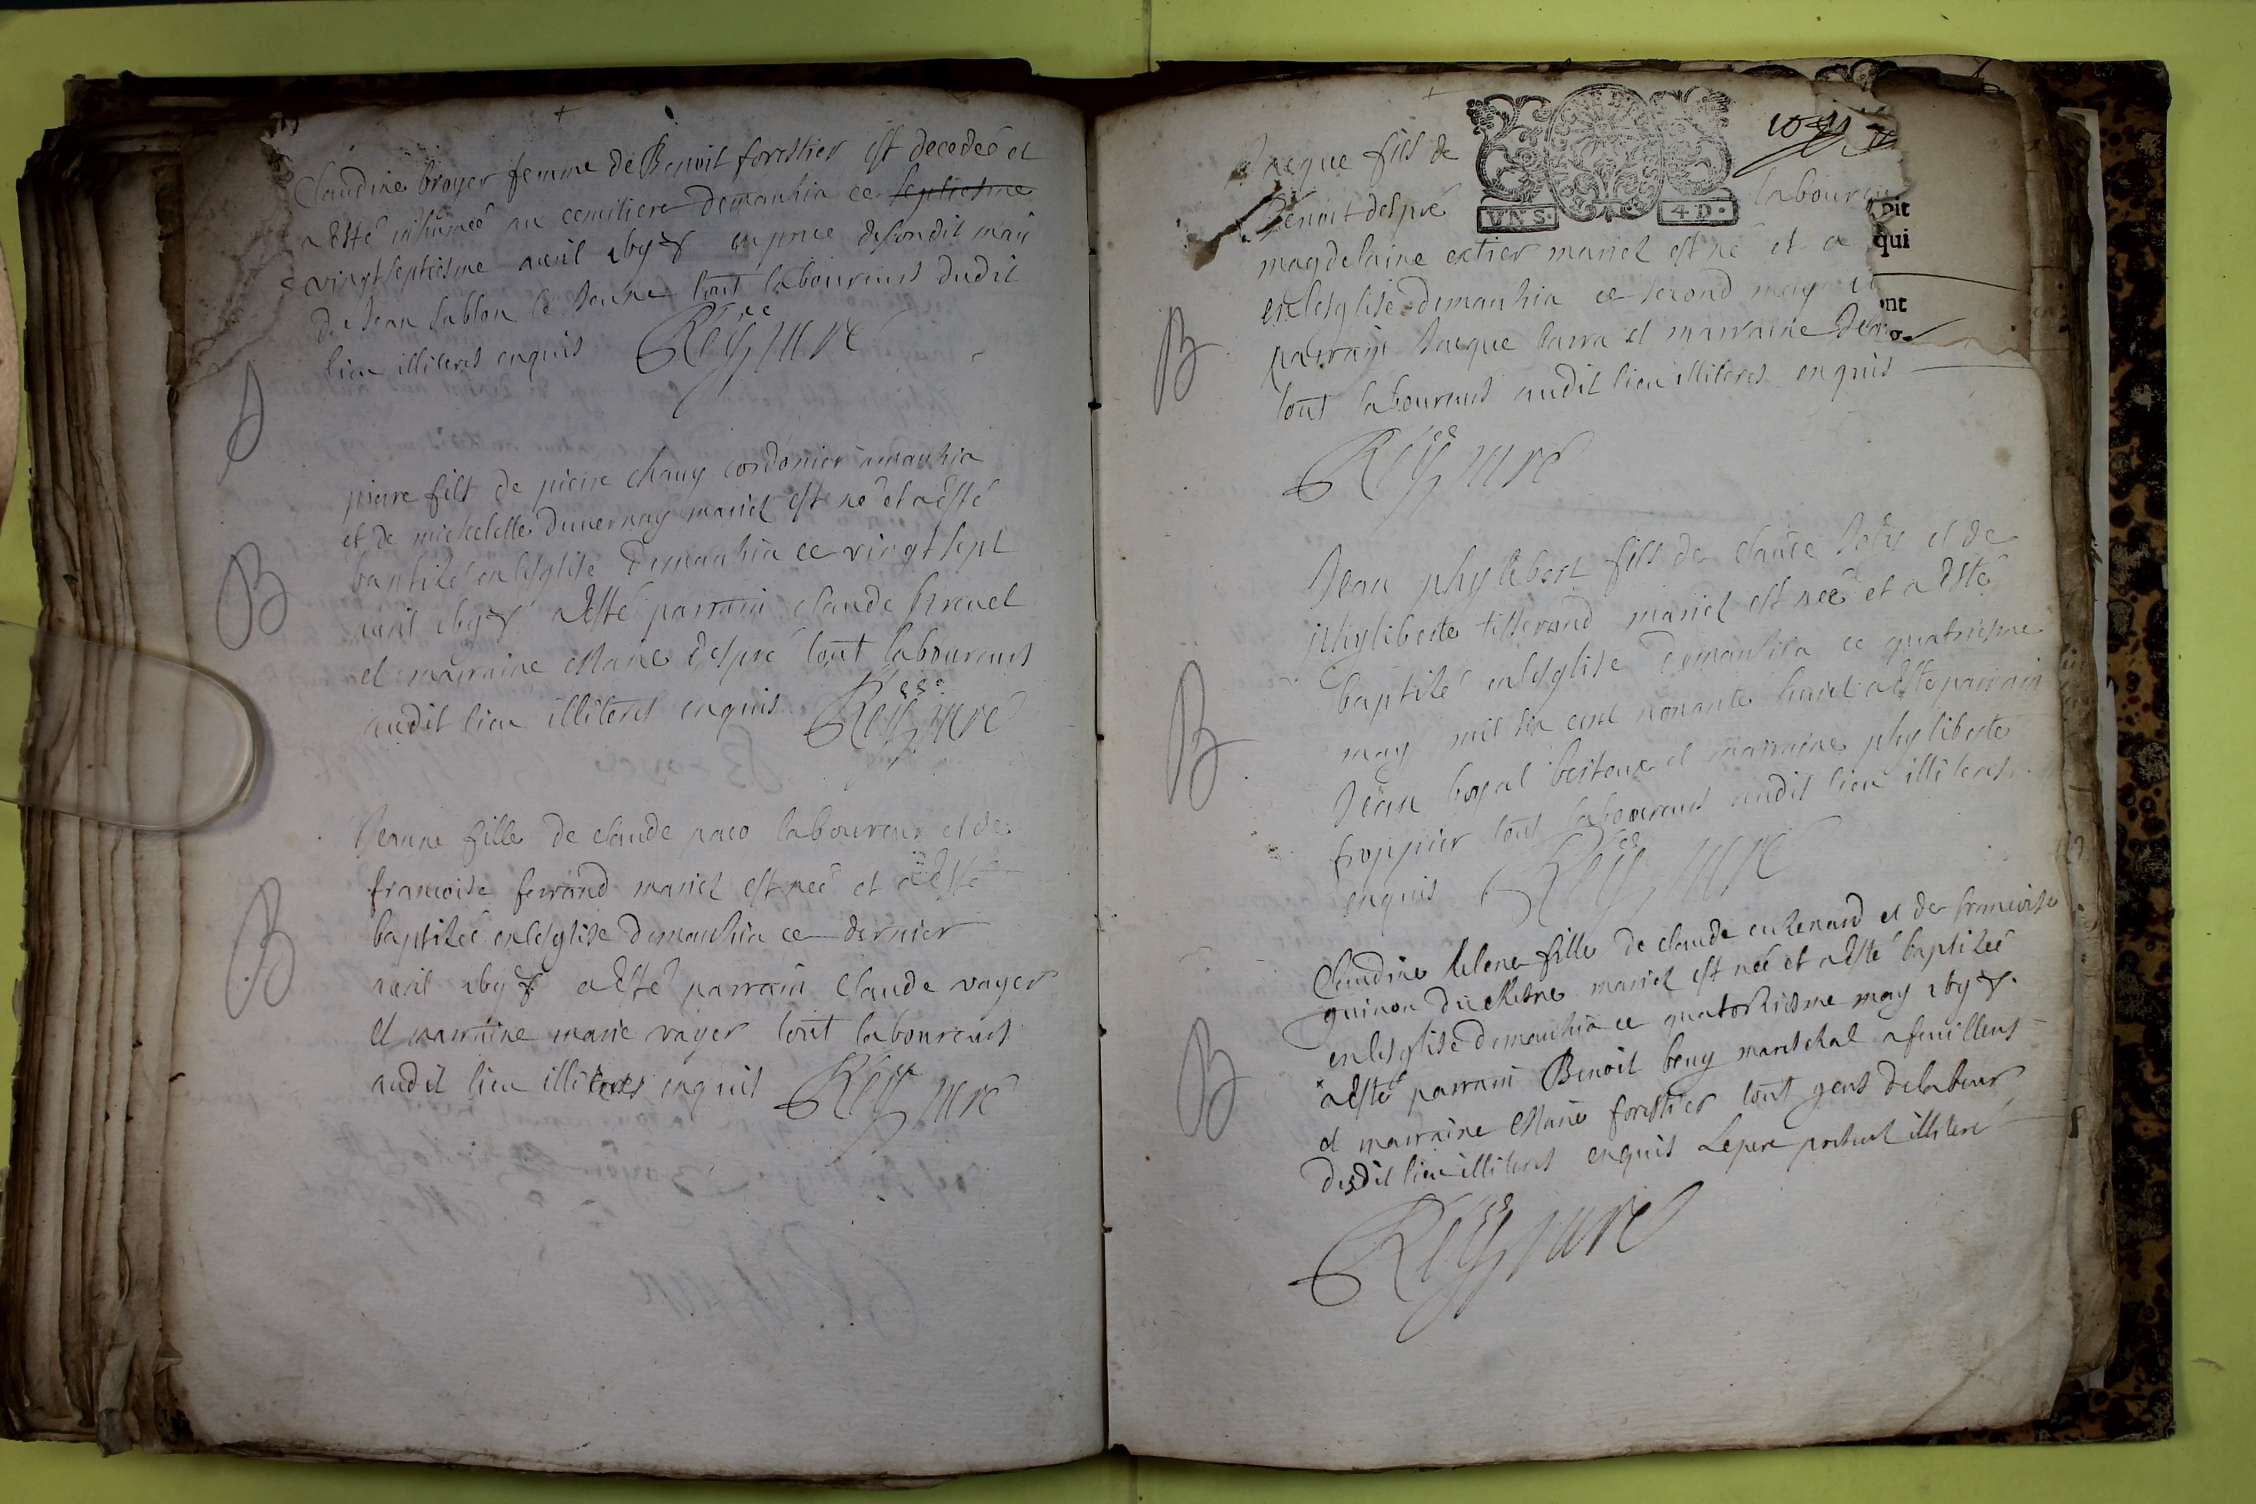 Claudine broyer femme de Benoit forestier est decedeé et
a esté inhumeé au cemitiere demanhia ce septiesme
vingtseptiesme auril en pnce defondit mari
De Jean Sablon le Jeune tout laboureurs dudit
lieu illiteres enquis
pierre fils de pierre chany cordonier amanhia
et de michelette duvernay mariez est né et a esté
baptizé en lesglise demanhia ce vingt sept
auril a esté parrain claude
et marraine estane despre tout laboureurs
audit lieu illiteres enquis
B
Jeanne fille de claude paco laboureur et de
francoise ferrand mariez est neé et a esté
baptizeé en lesglise demanhia ce dernier
auril a esté parrain Claude vayer
et marraine marie vayer tout laboureurs
audit lieu illiteres enquis
B
Jacque fils de
Benoit despré laboureu
VN S. 4. D.
oit
qui
magdelaine extier mariez est né et a
en lesglise demanhia ce second may
nt
parrain Jacque barra et marraine
tout laboureurs audit lieu illiteres enquis
B
Jean phylibert fils de claude et de
phyliberte tisserand mariez est neé et a esté
baptizé en lesglise demanhia ce quatriesme
may mil six cent nonante huict a esté parrain
Jean boyal et marraine phyliberte
froppier tout laboureurs audit lieu illiteres
enquis
B
Claudine helene fille de claude curenard et de francoise
guinon du chesne mariez est neé et a esté baptizeé
en lesglise demanhia ce quatorziesme may
a esté parrain Benoit beuy mareschal afeuillens
et marraine estane forestier tout gens de labeur
dudit lieu illiteres enquis Le pere present illiteré
B